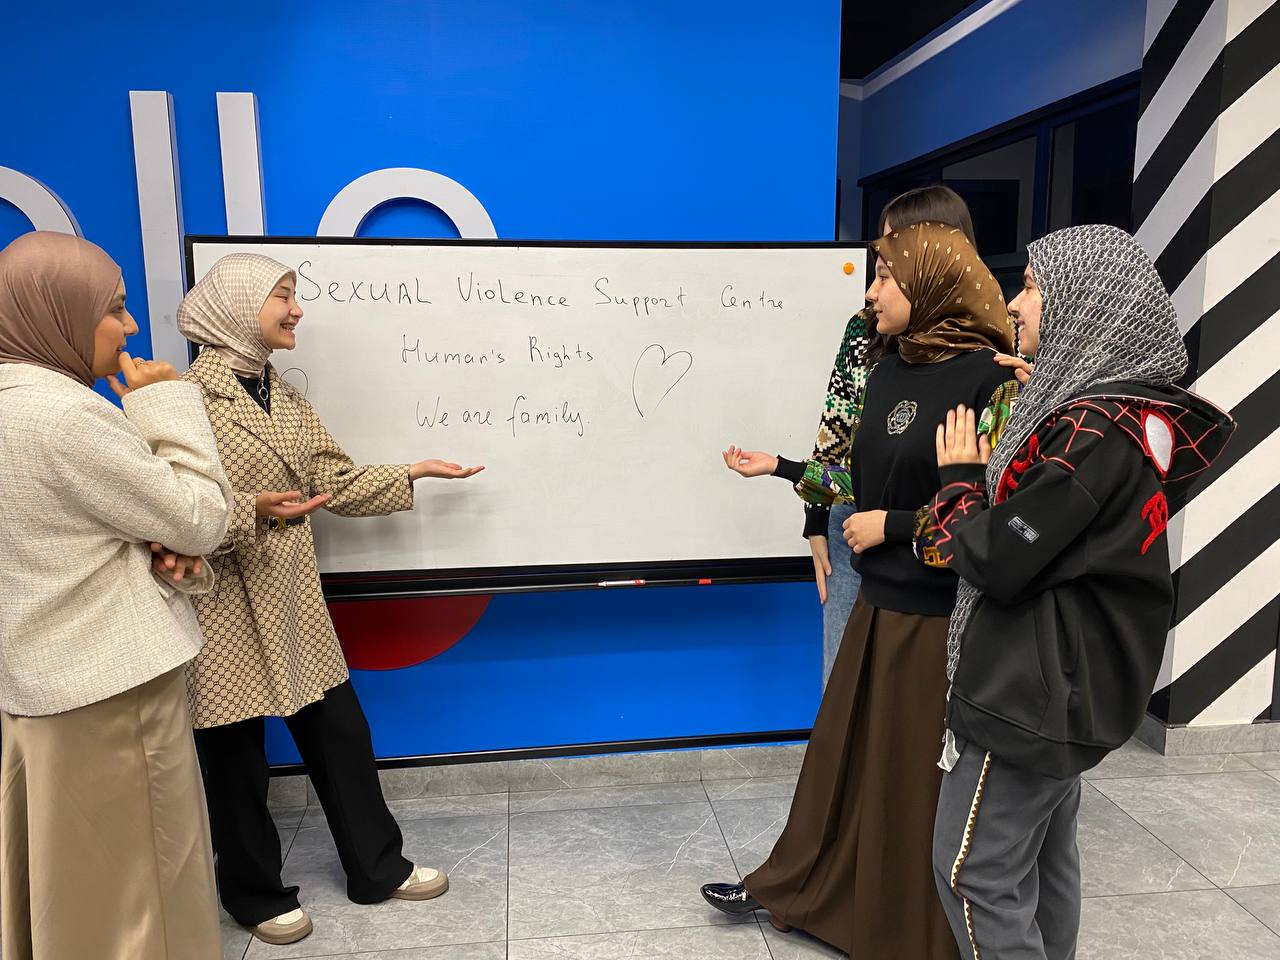 llo
Sexual Violence Support Centre
Human's Rights
We are family.